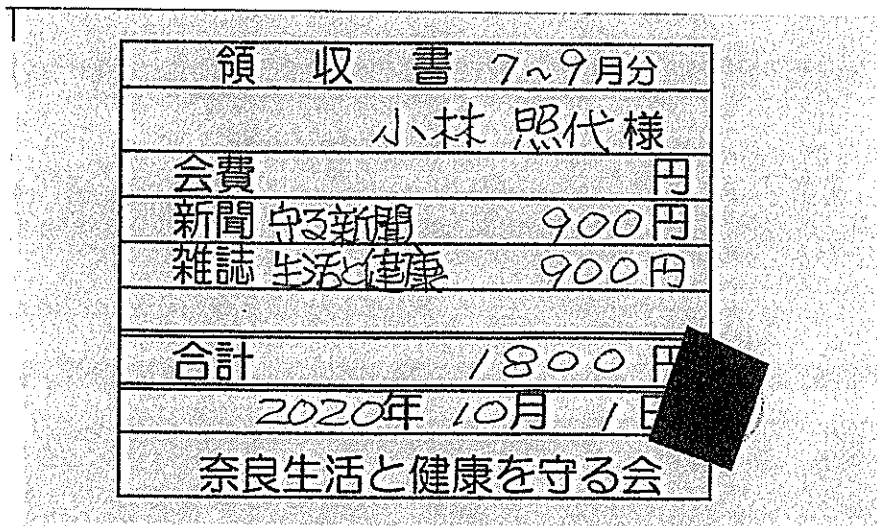 領収書 7~9月分
小林 照代様
会費 円
新聞 守る新聞 900円
雑誌 生活と健康 900円
合計 1800円
2020年 10月 1日
奈良生活と健康を守る会